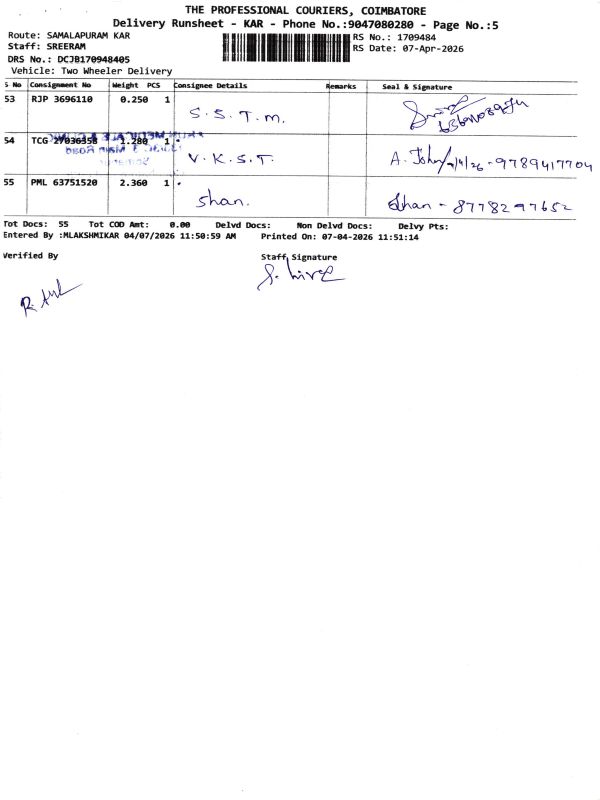 THE PROFESSIONAL COURIERS, COIMBATORE
Delivery Runsheet - KAR - Phone No.:9047080280 - Page No.:5
Route: SAMALAPURAM KAR
RS No.: 1709484
Staff: SREERAM
RS Date: 07-Apr-2026
DRS No.: DCJB170948405
Vehicle: Two Wheeler Delivery
S No Consignment No Weight PCS Consignee Details Remarks Seal & Signature
53 RJP 3696110 0.250 1 S.S.T.M.
54 TCG 27036358 1.280 1 V.K.S.T. A. 9789417704
55 PML 63751520 2.360 1 Shan. Shan - 8778297652
Tot Docs: 55 Tot COD Amt: 0.00 Delvd Docs: Non Delvd Docs: Delvy Pts:
Entered By :MLAKSHMIKAR 04/07/2026 11:50:59 AM Printed On: 07-04-2026 11:51:14
Verified By Staff Signature